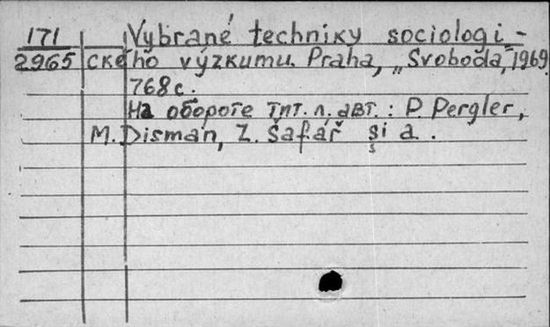 171 Vybrané techniky sociologi-
2965 ckého výzkumu. Praha, „Svoboda", 1969
768 c.
На обороте тит. л. авт.: P. Pergler,
M. Disman, Z. Šafář și a.